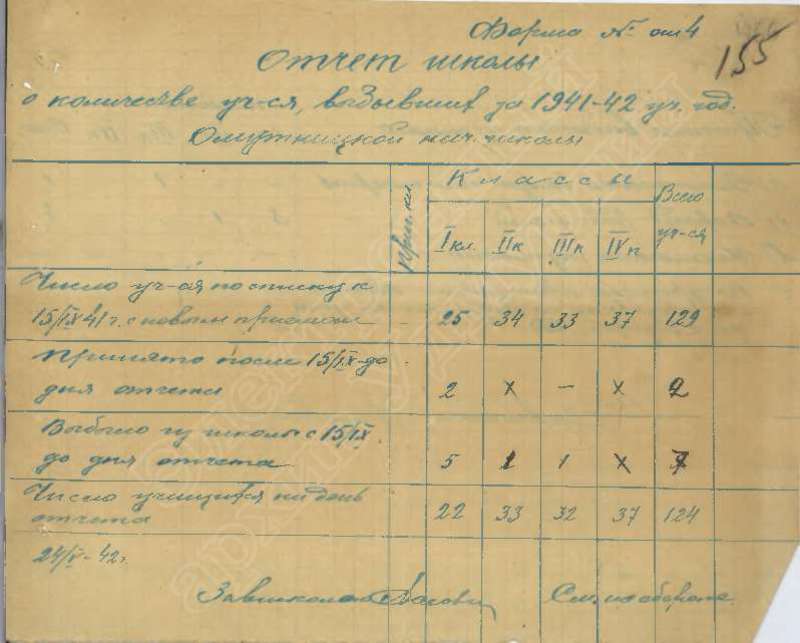 Форма № ош 4
155
Отчет школы
о количестве уч-ся, выбывших за 1941-42 уч. год.
Омутницкой нач. школы
Классы
Всего уч-ся
I кл. II к III к IV к
Число уч-ся по списку к
15/IX 41 г. с новым приемом 25 34 33 37 129
Принято после 15/IX до
дня отчета 2 х – х 2
Выбыло из школы с 15/IX
до дня отчета 5 1 1 х 7
Число учащихся на день
отчета 22 33 32 37 124
24/V-42 г.
Завшколой
См. на обороте